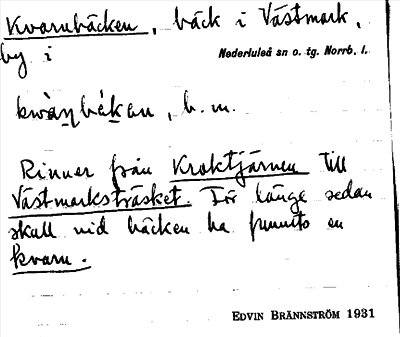 Kvarnbäcken, bäck i Västmark,
by i Nederluleå sn o. tg. Norrb. l.
kwàn̠bèk̠an, b. m.
Rinner från Kroktjärnen till
Västmarksträsket. För länge sedan
skall vid bäcken ha funnits en
kvarn.
EDVIN BRÄNNSTRÖM 1931